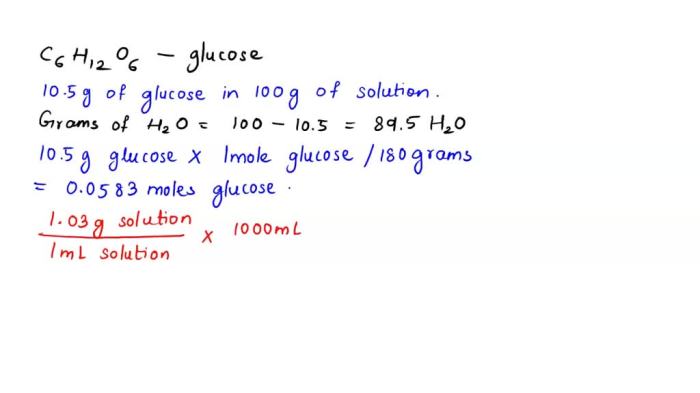 C6H12O6 – glucose
10.5g of glucose in 100g of solution.
Grams of H2O = 100 – 10.5 = 89.5 H2O
10.5g glucose × 1mole glucose / 180grams
= 0.0583 moles glucose .
1.03g solution / 1mL solution × 1000mL